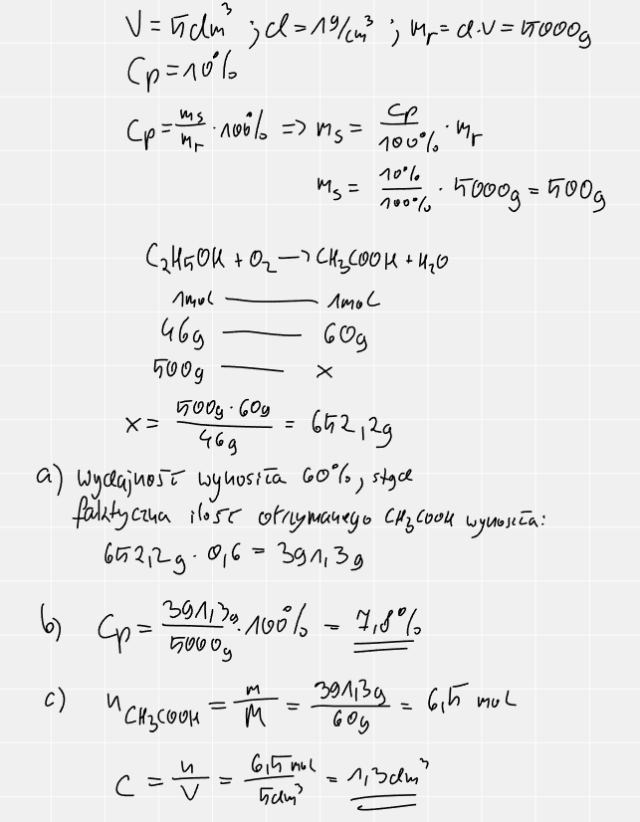 V = 5dm³ ; d = 1g/cm³ ; mr = d·V = 5000g
Cp = 10%
Cp = ms/mr · 100% => ms = Cp/100% · mr
ms = 10%/100% · 5000g = 500g
C₂H₅OH + O₂ → CH₃COOH + H₂O
1mol —— 1mol
46g —— 60g
500g —— x
x = 500g · 60g/46g = 652,2g
a) wydajność wynosiła 60%, stąd
faktyczna ilość otrzymanego CH₃COOH wynosiła:
652,2g · 0,6 = 391,3g
b) Cp = 391,3g/5000g · 100% = 7,8%
c) n CH₃COOH = m/M = 391,3g/60g = 6,5 mol
C = n/V = 6,5 mol/5dm³ = 1,3dm³